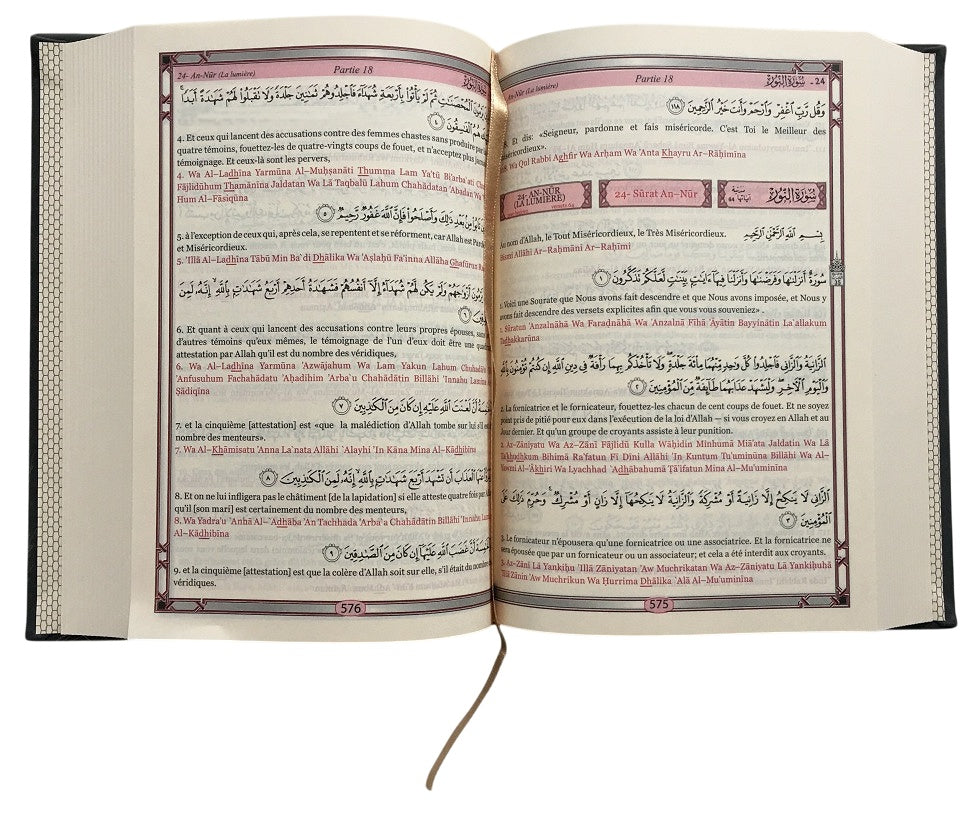 24- An-Nūr (La lumière)
Partie 18
24 - سُورَةُ النُّورِ
وَقُل رَّبِّ ٱغْفِرْ وَٱرْحَمْ وَأَنتَ خَيْرُ ٱلرَّٰحِمِينَ ١١٨
Et dis: «Seigneur, pardonne et fais miséricorde. C'est Toi le Meilleur des
miséricordieux».
Wa Qul Rabbi Aghfir Wa Arham Wa 'Anta Khayru Ar–Rāhimīna
24- AN-NŪR
(LA LUMIÈRE)
versets 64
24- Sūrat An–Nūr
سُورَةُ النُّورِ
آياتها 64
Au nom d'Allah, le Tout Miséricordieux, le Très Miséricordieux.
بِسْمِ ٱللَّهِ ٱلرَّحْمَٰنِ ٱلرَّحِيمِ
Bismi Allāhi Ar–Rahmāni Ar–Rahīmi
سُورَةٌ أَنزَلْنَٰهَا وَفَرَضْنَٰهَا وَأَنزَلْنَا فِيهَآ ءَايَٰتٍۭ بَيِّنَٰتٍ لَّعَلَّكُمْ تَذَكَّرُونَ ١
1. Voici une Sourate que Nous avons fait descendre et que Nous avons imposée, et Nous y
avons fait descendre des versets explicites afin que vous vous souveniez» .
1. Sūratun 'Anzalnāhā Wa Faradnāhā Wa 'Anzalnā Fīhā 'Āyātin Bayyinātin La`allakum
Tadhakkarūna
ٱلزَّانِيَةُ وَٱلزَّانِى فَٱجْلِدُوا۟ كُلَّ وَٰحِدٍ مِّنْهُمَا مِا۟ئَةَ جَلْدَةٍ وَلَا تَأْخُذْكُم بِهِمَا رَأْفَةٌ فِى دِينِ ٱللَّهِ إِن كُنتُمْ تُؤْمِنُونَ بِٱللَّهِ
وَٱلْيَوْمِ ٱلْءَاخِرِ وَلْيَشْهَدْ عَذَابَهُمَا طَآئِفَةٌ مِّنَ ٱلْمُؤْمِنِينَ ٢
2. La fornicatrice et le fornicateur, fouettez-les chacun de cent coups de fouet. Et ne soyez
point pris de pitié pour eux dans l'exécution de la loi d'Allah – si vous croyez en Allah et au
Jour dernier. Et qu'un groupe de croyants assiste à leur punition.
2. Az–Zāniyatu Wa Az–Zānī Fājlidū Kulla Wāhidin Minhumā Miā'ata Jaldatin Wa Lā
Ta'khudhkum Bihimā Ra'fatun Fī Dīni Allāhi 'In Kuntum Tu'uminūna Billāhi Wa Al–
Yawmi Al–'Ākhiri Wa Lyachhad `Adhābahumā Tā'ifatun Mina Al–Mu'uminīna
ٱلزَّانِى لَا يَنكِحُ إِلَّا زَانِيَةً أَوْ مُشْرِكَةً وَٱلزَّانِيَةُ لَا يَنكِحُهَآ إِلَّا زَانٍ أَوْ مُشْرِكٌ وَحُرِّمَ ذَٰلِكَ عَلَى
ٱلْمُؤْمِنِينَ ٣
3. Le fornicateur n'épousera qu'une fornicatrice ou une associatrice. Et la fornicatrice ne
sera épousée que par un fornicateur ou un associateur; et cela a été interdit aux croyants.
3. Az–Zānī Lā Yankiĥu 'Illā Zāniyatan 'Aw Muchrikatan Wa Az–Zāniyatu Lā Yankiĥuhā
'Illā Zānin 'Aw Muchrikun Wa Hurrima Dhālika `Alā Al–Mu'uminīna
575
24- An-Nūr (La lumière)
Partie 18
يَرْمُونَ ٱلْمُحْصَنَٰتِ ثُمَّ لَمْ يَأْتُوا۟ بِأَرْبَعَةِ شُهَدَآءَ فَٱجْلِدُوهُمْ ثَمَٰنِينَ جَلْدَةً وَلَا تَقْبَلُوا۟ لَهُمْ شَهَٰدَةً أَبَدًا
هُمُ ٱلْفَٰسِقُونَ ٤
4. Et ceux qui lancent des accusations contre des femmes chastes sans produire par
quatre témoins, fouettez-les de quatre-vingts coups de fouet, et n'acceptez plus jamais
témoignage. Et ceux-là sont les pervers,
4. Wa Al–Ladhīna Yarmūna Al–Muĥşanāti Thumma Lam Ya'tū Bi'arba`ati
Fājlidūhum Thamānīna Jaldatan Wa Lā Taqbalū Lahum Chahādatan 'Abadan Wa
Hum Al–Fāsiqūna
تَابُوا۟ مِنۢ بَعْدِ ذَٰلِكَ وَأَصْلَحُوا۟ فَإِنَّ ٱللَّهَ غَفُورٌ رَّحِيمٌ ٥
5. à l'exception de ceux qui, après cela, se repentent et se réforment, car Allah est
et Miséricordieux.
5. 'Illā Al–Ladhīna Tābū Min Ba`di Dhālika Wa 'Aşlaĥū Fa'inna Allāha Ghafūrun
يَرْمُونَ أَزْوَٰجَهُمْ وَلَمْ يَكُن لَّهُمْ شُهَدَآءُ إِلَّآ أَنفُسُهُمْ فَشَهَٰدَةُ أَحَدِهِمْ أَرْبَعُ شَهَٰدَٰتٍۭ بِٱللَّهِ إِنَّهُۥ لَمِنَ
٦
6. Et quant à ceux qui lancent des accusations contre leurs propres épouses, sans
d'autres témoins qu'eux mêmes, le témoignage de l'un d'eux doit être une
attestation par Allah qu'il est du nombre des véridiques,
6. Wa Al–Ladhīna Yarmūna 'Azwājahum Wa Lam Yakun Lahum Chuhadā'u
'Anfusuhum Fachahādatu 'Aĥadihim 'Arba`u Chahādātin Billāhi 'Innahu Lamina
Şādiqīna
أَنَّ لَعْنَتَ ٱللَّهِ عَلَيْهِ إِن كَانَ مِنَ ٱلْكَٰذِبِينَ ٧
7. et la cinquième [attestation] est «que la malédiction d'Allah tombe sur lui s'il est
nombre des menteurs».
7. Wa Al–Khāmisatu 'Anna La`nata Allāhi `Alayhi 'In Kāna Mina Al–Kādhibīna
عَنْهَا ٱلْعَذَابَ أَن تَشْهَدَ أَرْبَعَ شَهَٰدَٰتٍۭ بِٱللَّهِ إِنَّهُۥ لَمِنَ ٱلْكَٰذِبِينَ ٨
8. Et on ne lui infligera pas le châtiment [de la lapidation] si elle atteste quatre fois par
qu'il [son mari] est certainement du nombre des menteurs,
8. Wa Yadra'u `Anhā Al–`Adhāba 'An Tachhada 'Arba`a Chahādātin Billāhi 'Innahu
Al–Kādhibīna
أَنَّ غَضَبَ ٱللَّهِ عَلَيْهَآ إِن كَانَ مِنَ ٱلصَّٰدِقِينَ ٩
9. et la cinquième [attestation] est que la colère d'Allah soit sur elle, s'il était du nombre
véridiques.
576